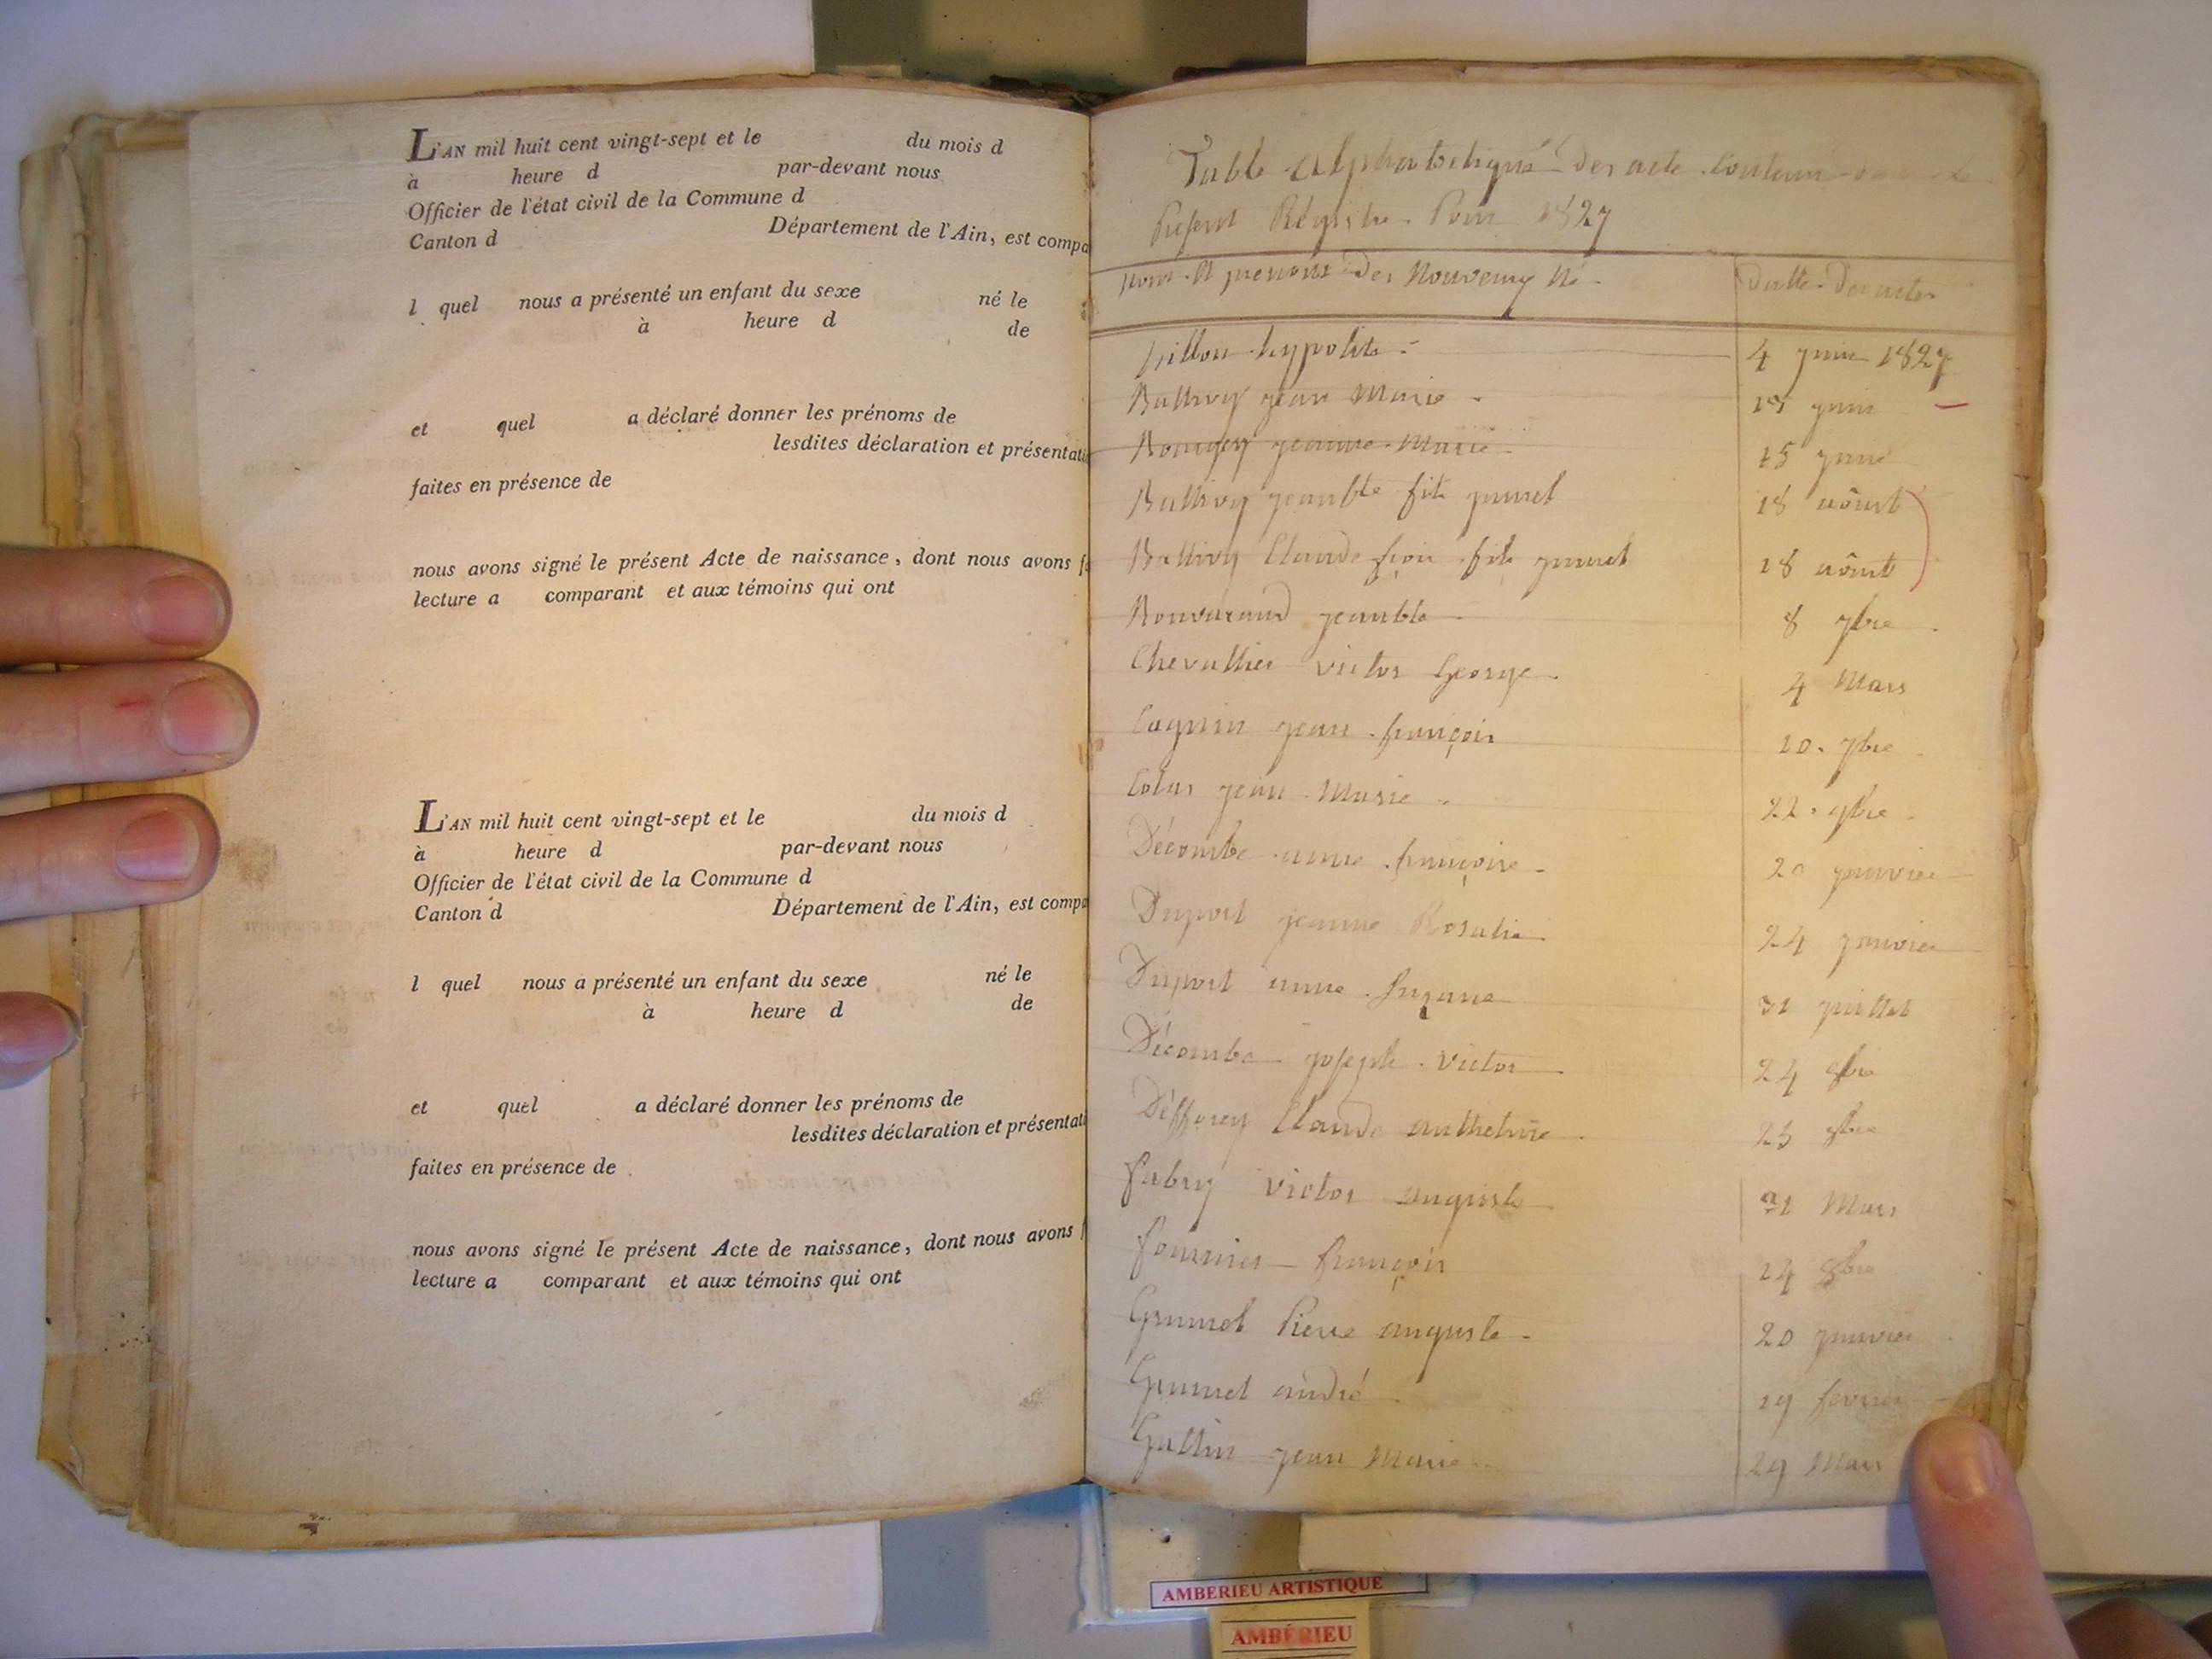 L'AN mil huit cent vingt-sept et le du mois d
à heure d par-devant nous
Officier de l'état civil de la Commune d
Canton d Département de l'Ain, est compa
l quel nous a présenté un enfant du sexe né le
à heure d de
et quel a déclaré donner les prénoms de
lesdites déclaration et présentati
faites en présence de
nous avons signé le présent Acte de naissance, dont nous avons f
lecture a comparant et aux témoins qui ont
L'AN mil huit cent vingt-sept et le du mois d
à heure d par-devant nous
Officier de l'état civil de la Commune d
Canton d Département de l'Ain, est compa
l quel nous a présenté un enfant du sexe né le
à heure d de
et quel a déclaré donner les prénoms de
lesdites déclaration et présentati
faites en présence de
nous avons signé le présent Acte de naissance, dont nous avons f
lecture a comparant et aux témoins qui ont
Table Alphabetique Des acte
Présent Régistre Pour 1827
nom et prenoms Des Nouveaux Né Datte Des actes
hypolite 4 1827
Ballivy jean Marie
jeanne Marie 15
Ballivy jeanbte 18 aôust
Ballivy Claude fçois 18 aôust
Bonvarand jeanbte 8
Chevallier victor George 4 Mars
Cagnin jean françois 10. 7bre
Colas jean Marie 22. 9bre
Décombe anne françoise 20 janvier
Duport jeanne Rosalie 24 janvier
Duport anne Suzane 31 juillet
Décombe joseph victor 24
Déffarey Claude anthelme 25
fabry victor auguste 21 Mars
fournier françois 14
Grumet Pierre auguste 20 janvier
Grumet andré 19 fevrier
Gallin jean Marie 29 Mars
AMBERIEU ARTISTIQUE
AMBÉRIEU